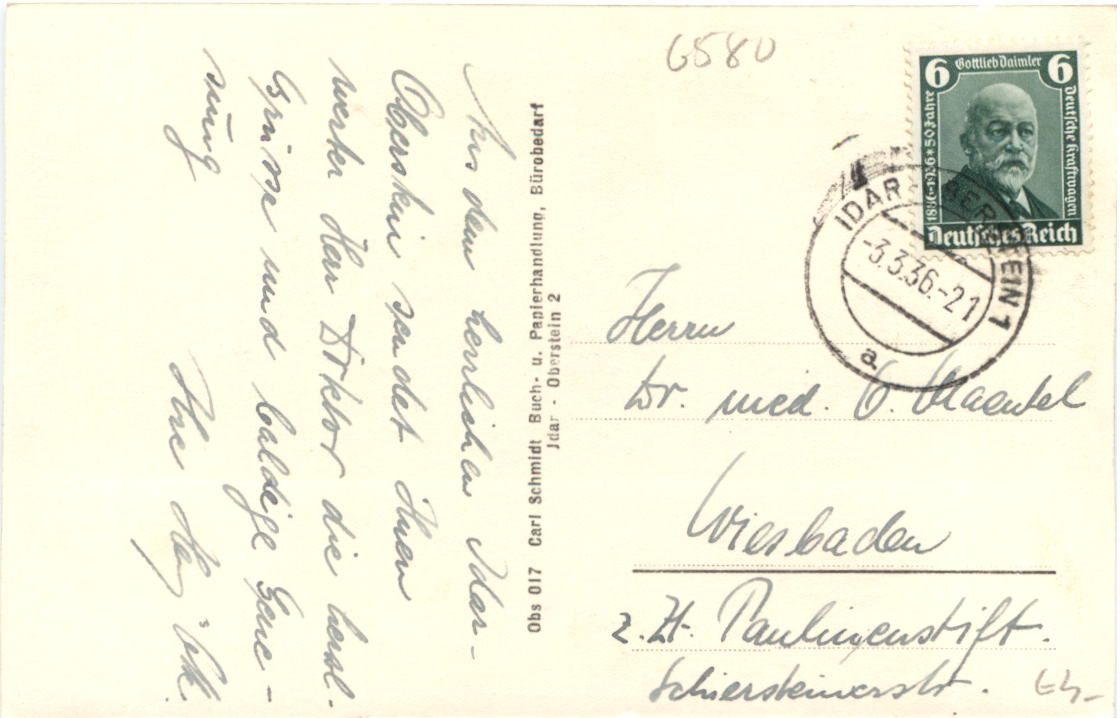 Aus dem herrlichen Idar-
Oberstein sendet Ihnen
werter Herr Doktor die herzl.
Grüsse und baldige Gene-
sung
Ihre
Obs 017 Carl Schmidt Buch- u. Papierhandlung, Bürobedarf
Idar - Oberstein 2
6580
6 Gottlieb Daimler 6
1886-1936 * 50 Jahre
Deutsche Kraftwagen
Deutsches Reich
IDAR-OBERSTEIN 1
-3.3.36.-21
a
Herrn
Dr. med.
Wiesbaden
z. Zt. Paulinenstift.
Schiersteinerstr.